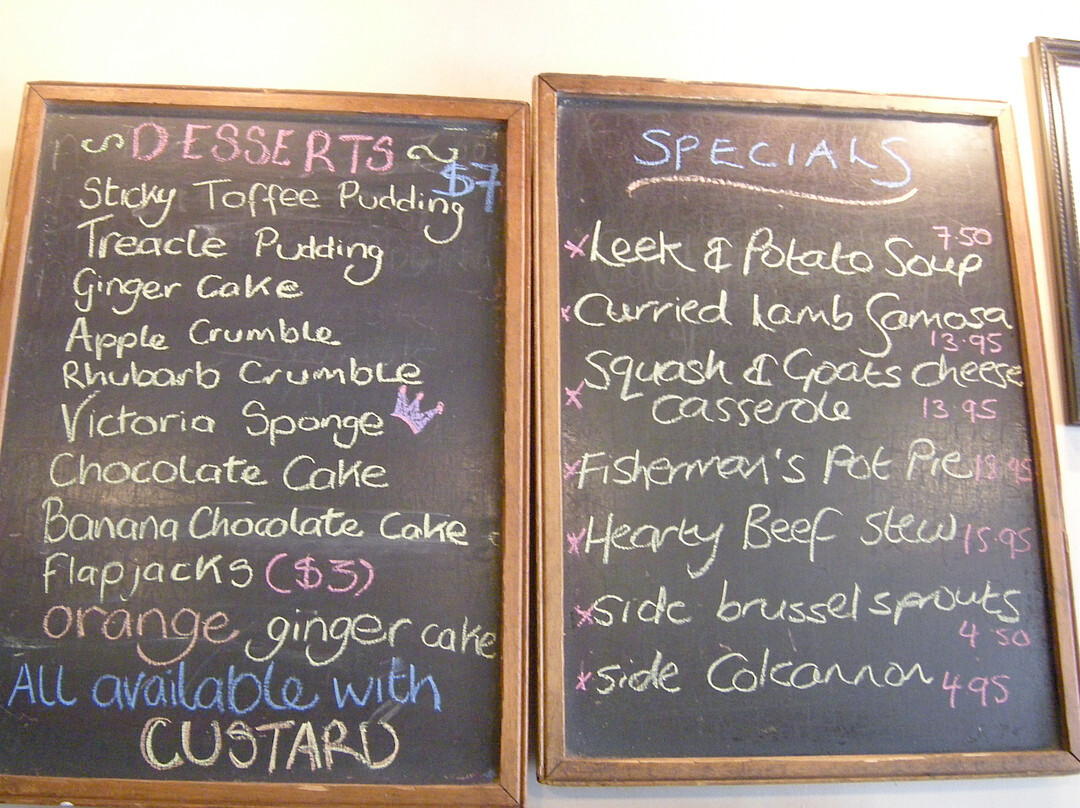 DESSERTS
$7
Sticky Toffee Pudding
Treacle Pudding
Ginger Cake
Apple Crumble
Rhubarb Crumble
Victoria Sponge
Chocolate Cake
Banana Chocolate Cake
Flapjacks ($3)
orange ginger cake
All available with
CUSTARD
SPECIALS
Leek & Potato Soup 7.50
Curried Lamb Samosa
13.95
Squash & Goats cheese
casserole 13.95
Fisherman's Pot Pie 18.95
Hearty Beef Stew 15.95
side brussel sprouts
4 50
side Colcannon 4.95